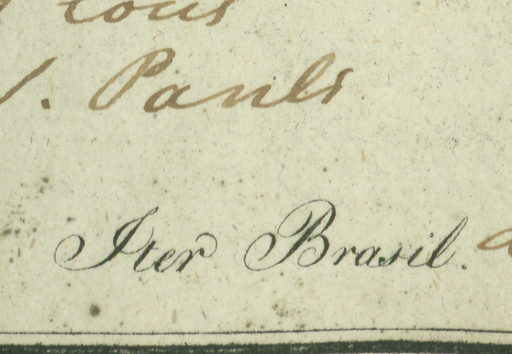 S. Pauli
Iter Brasil.